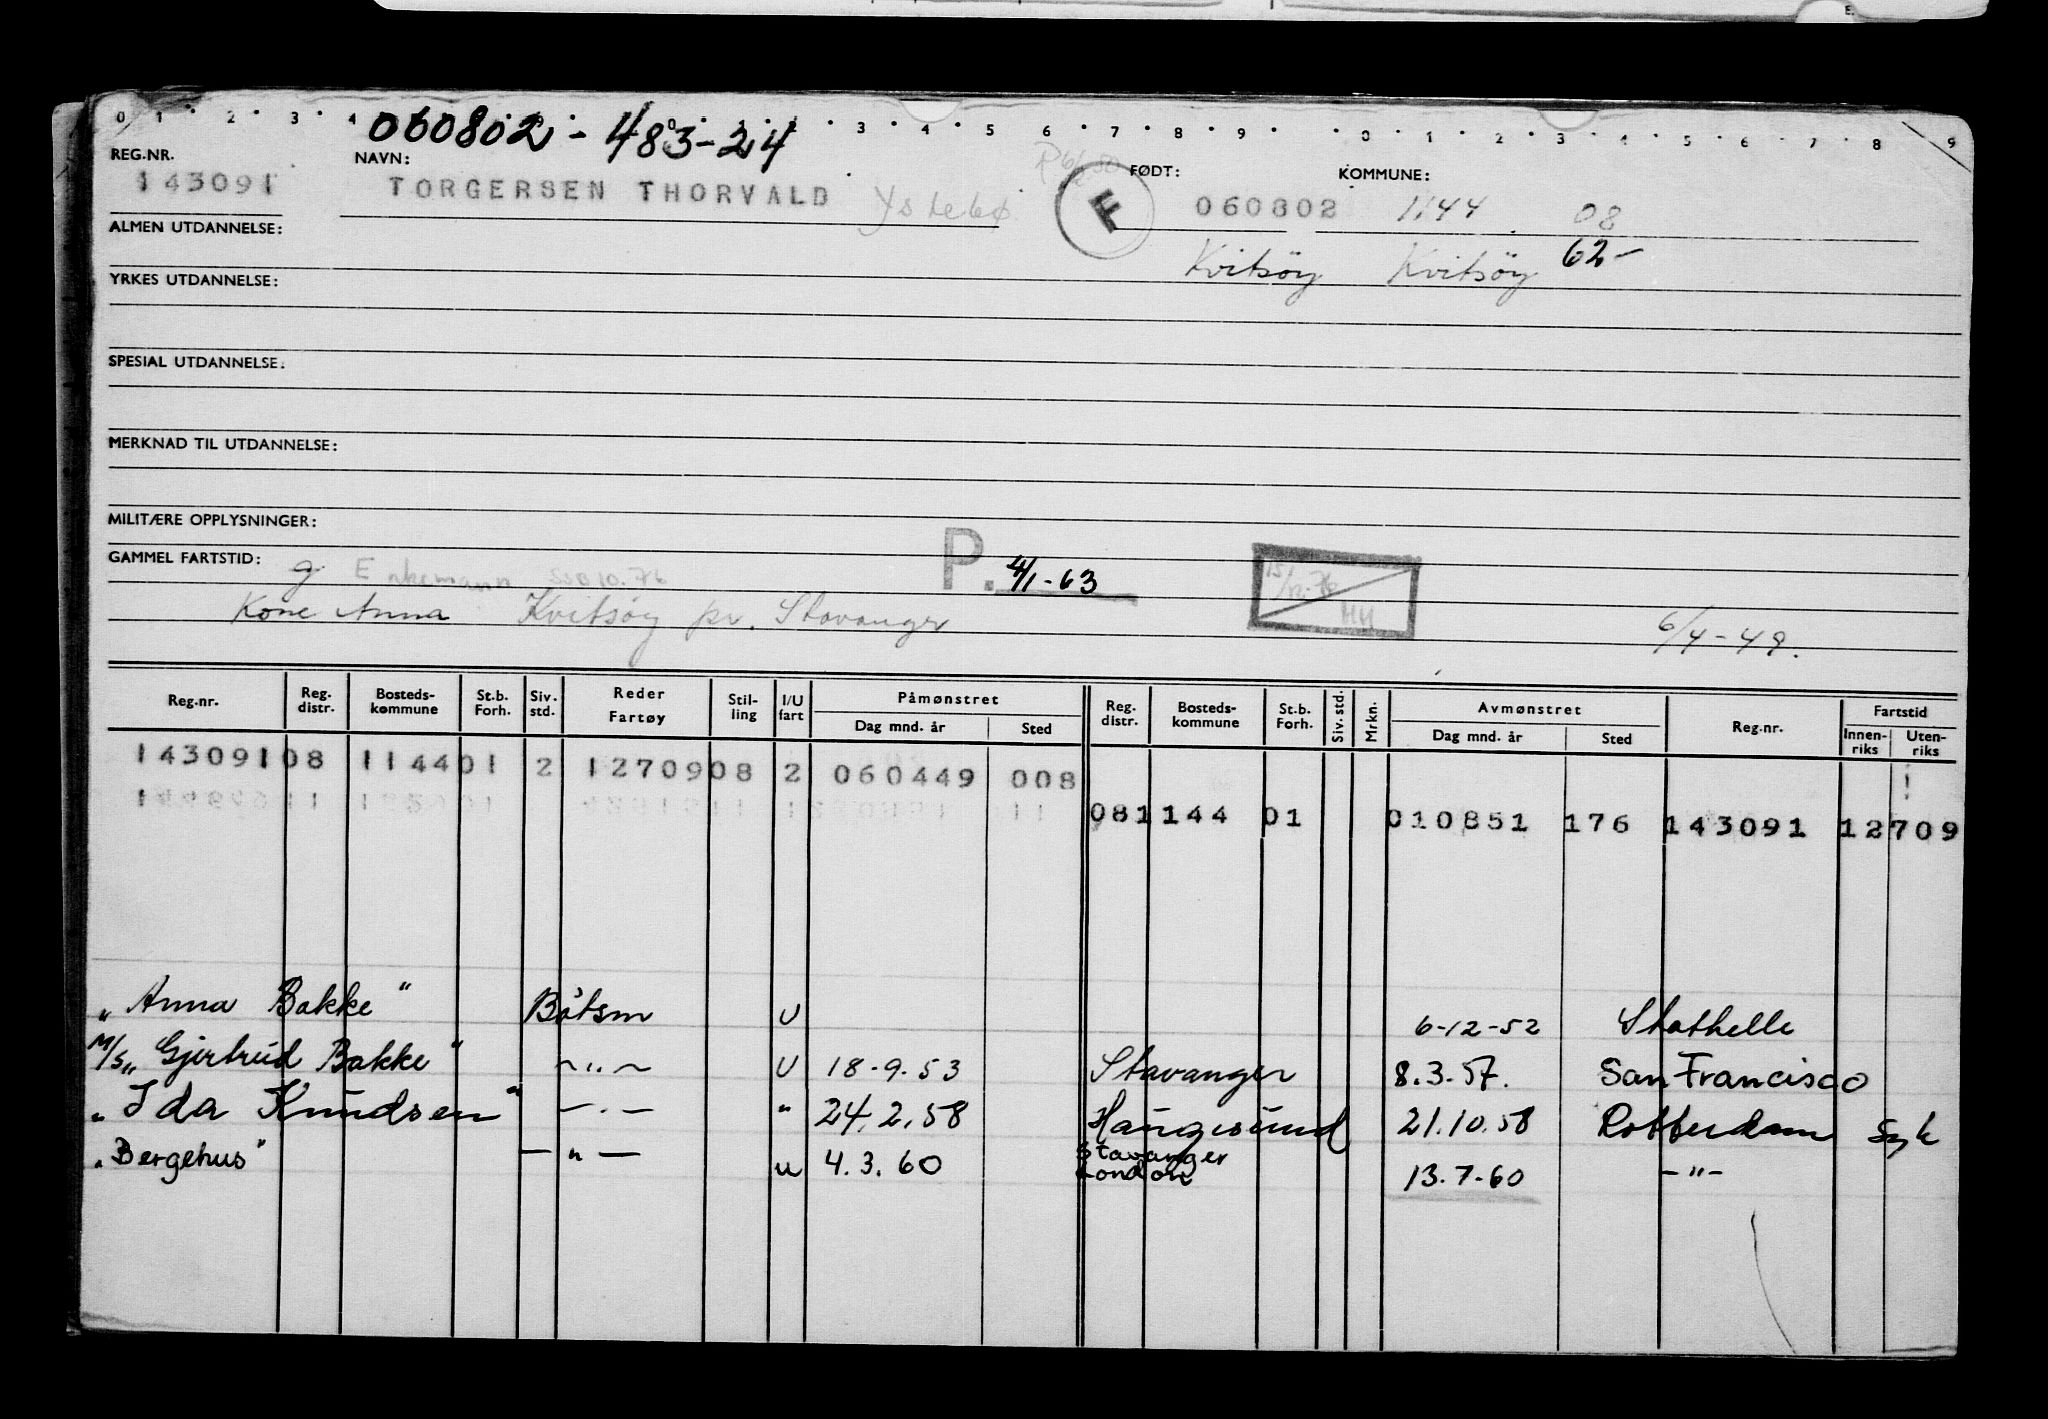 060802 - 483-24
0 1 2 3 4 3 4 5 6 7 8 9 0 1 2 3 4 5 6 7 8 9
REG.NR. NAVN: FØDT: KOMMUNE:
143091 TORGERSEN THORVALD Ystebø F 060802 1144 08
ALMEN UTDANNELSE:
Kvitsøy Kvitsøy 62-
YRKES UTDANNELSE:
SPESIAL UTDANNELSE:
MERKNAD TIL UTDANNELSE:
MILITÆRE OPPLYSNINGER:
GAMMEL FARTSTID: g Enkemann 10.76 P. 4/1-63
Kone Anna Kvitsøy pr. Stavanger HH 6/4-49.
Reg.nr. Reg. distr. Bosteds-kommune St.b. Forh. Siv. std. Reder Fartøy Stil-ling I/U fart Påmønstret Dag mnd. år Sted Reg. distr. Bosteds-kommune St.b. Forh. Siv. std. Mrkn. Avmønstret Dag mnd. år Sted Reg.nr. Fartstid Innen-riks Uten-riks
143091 08 1144 01 2 12709 08 2 060449 008
08 1144 01 010851 176 143091 12709
"Anna Bakke" Båtsm U 6-12-52 Stathelle
M/S "Gjertrud Bakke" -"- U 18-9.53 Stavanger 8.3.57. San Francisco
"Ida Knudsen" -"- " 24.2.58 Haugesund 21.10.58 Rotterdam Syk
"Bergehus" -"- u 4.3.60 Stavanger London 13.7-60 -"-